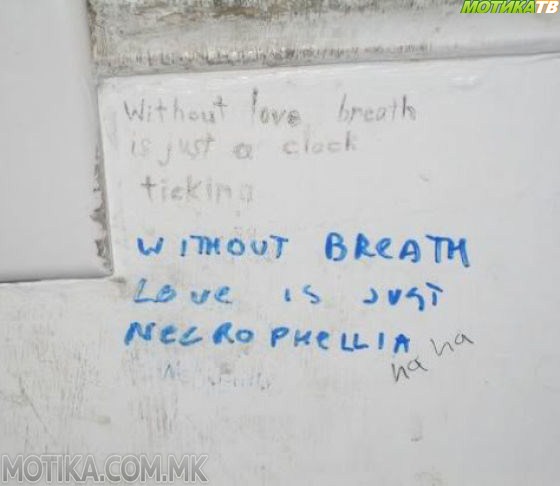 МОТИКАТВ
Without love breath
is just a clock
ticking
WITHOUT BREATH
LOVE IS JUST
NECROPHELLIA
ha ha
MOTIKA.COM.MK